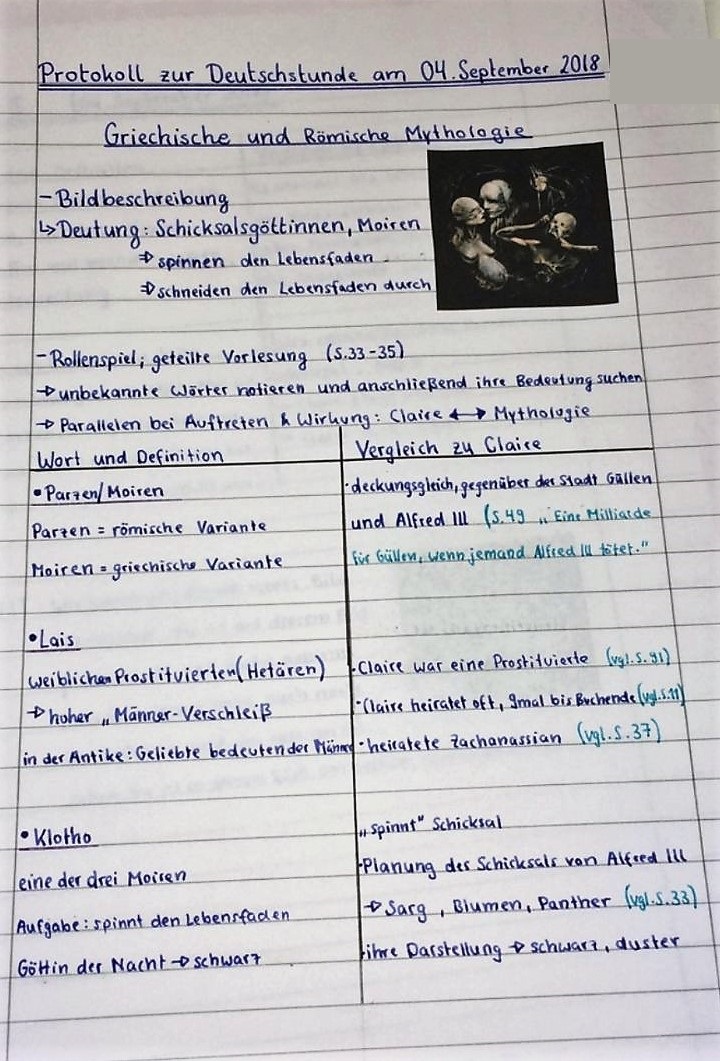 Protokoll zur Deutschstunde am 04. September 2018
Griechische und Römische Mythologie
- Bildbeschreibung
↳ Deutung: Schicksalsgöttinnen, Moiren
⇒ spinnen den Lebensfaden
⇒ schneiden den Lebensfaden durch
- Rollenspiel; geteilte Vorlesung (S.33-35)
→ unbekannte Wörter notieren und anschließend ihre Bedeutung suchen
→ Parallelen bei Auftreten & Wirkung: Claire ↔ Mythologie
Wort und Definition
• Parzen/Moiren
Parzen = römische Variante
Moiren = griechische Variante
• Lais
weiblichen Prostituierten (Hetären)
→ hoher „Männer-Verschleiß
in der Antike: Geliebte bedeutender Männer
• Klotho
eine der drei Moiren
Aufgabe: spinnt den Lebensfaden
Göttin der Nacht → schwarz
Vergleich zu Claire
· deckungsgleich, gegenüber der Stadt Güllen
und Alfred Ill (S.49 „Eine Milliarde
für Güllen, wenn jemand Alfred Ill tötet."
- Claire war eine Prostituierte (vgl. S. 91)
- Claire heiratet oft, 9mal bis Buchende (vgl. S. 11)
- heiratete Zachanassian (vgl. S. 37)
„spinnt" Schicksal
- Planung des Schicksals von Alfred Ill
→ Sarg, Blumen, Panther (vgl. S. 33)
- ihre Darstellung → schwarz, duster